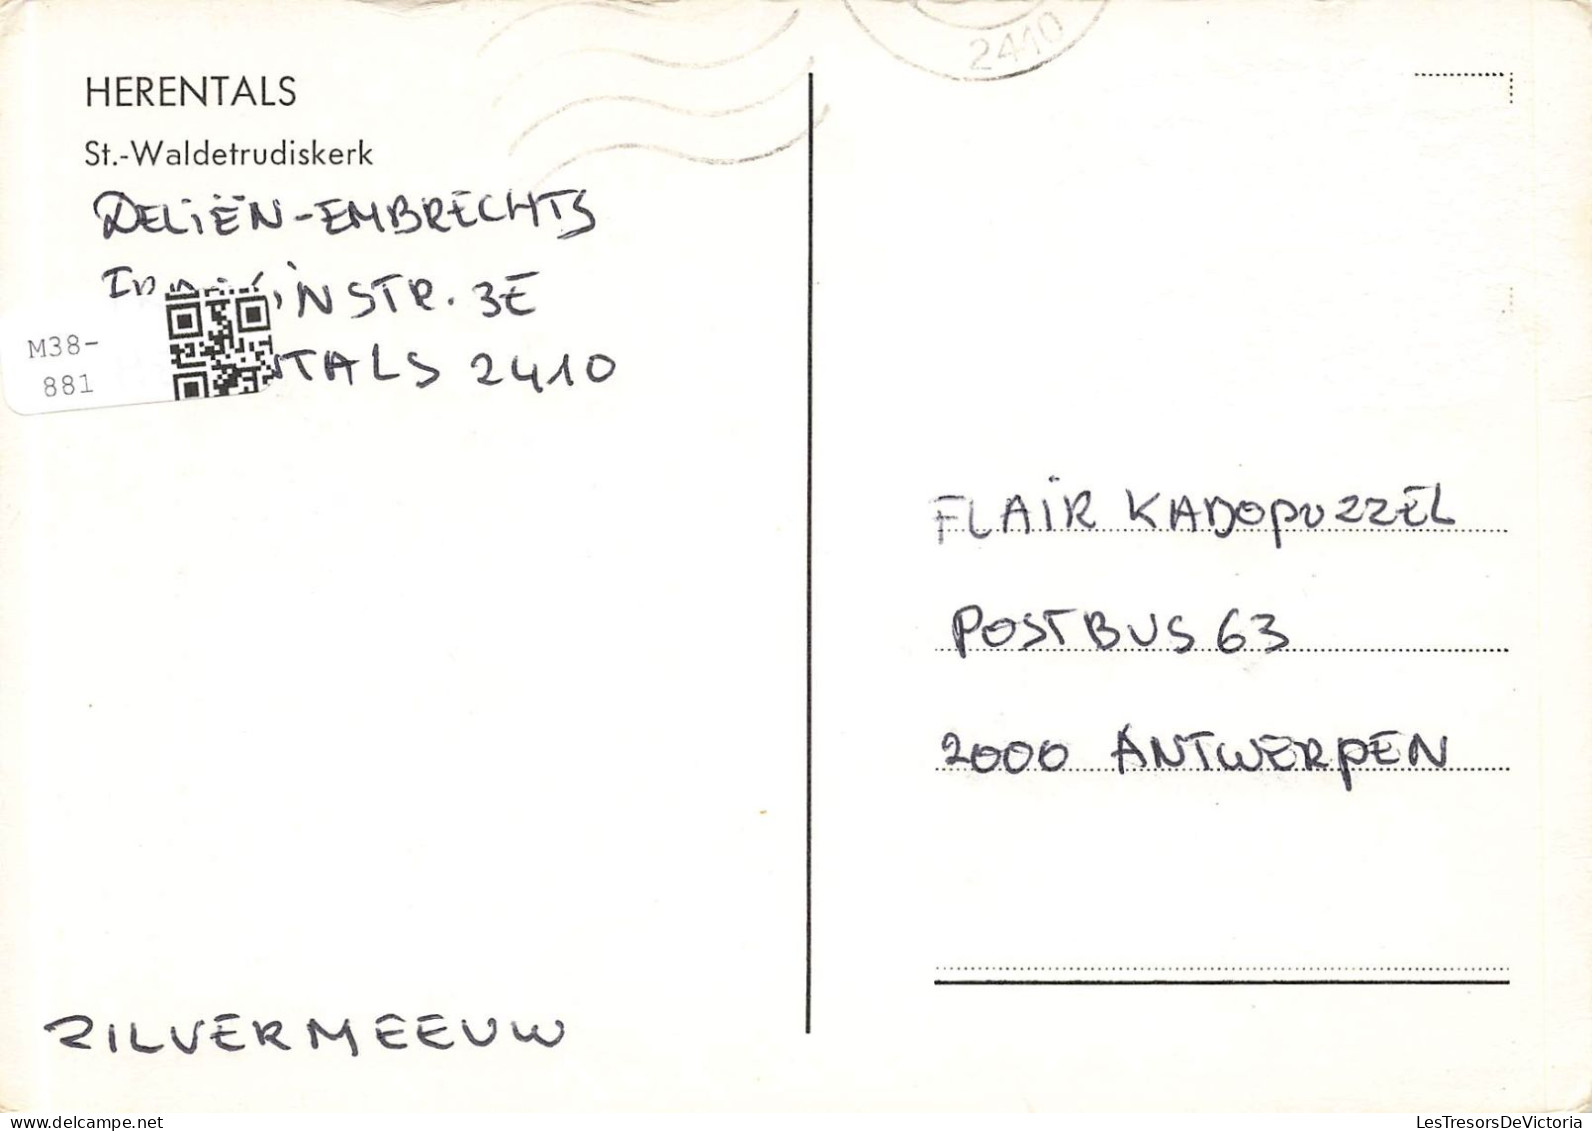 2410
HERENTALS
St.-Waldetrudiskerk
DELIËN-EMBRECHTS
INSTR. 3E
NTALS 2410
M38-
881
FLAIR KADOPUZZEL
POSTBUS 63
2000 ANTWERPEN
ZILVERMEEUW
LesTresorsDeVictoria